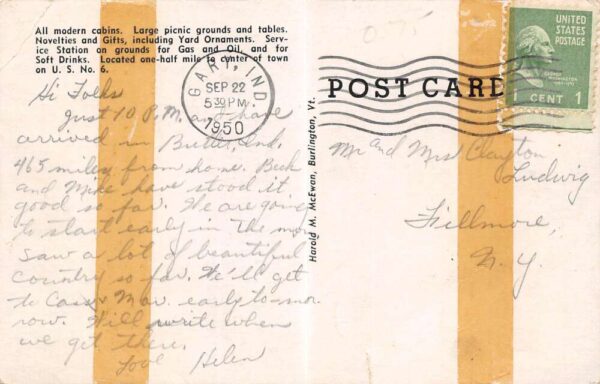 All modern cabins. Large picnic grounds and tables.
Novelties and Gifts, including Yard Ornaments. Serv-
ice Station on grounds for Gas and Oil, and for
Soft Drinks. Located one-half mile to center of town
on U. S. No. 6.
Hi Folks
Just 10 P.M. and have
arrived in Butler, Ind.
465 miles from home. Beck
and Mike have stood it
good so far. We are going
to start early in the mor.
Saw a lot of beautiful
Country so far. We'll get
to Cass & Mar. early to-mor-
row. Will write when
we get there.
Love Helen
Harold M. McEwan, Burlington, Vt.
GARY, IND.
SEP 22
5 30 PM
1950
POST CARD
UNITED
STATES
POSTAGE
GEORGE
WASHINGTON
1 CENT 1
Mr and Mrs Clayton
Ludwig
Fillmore,
N. Y.